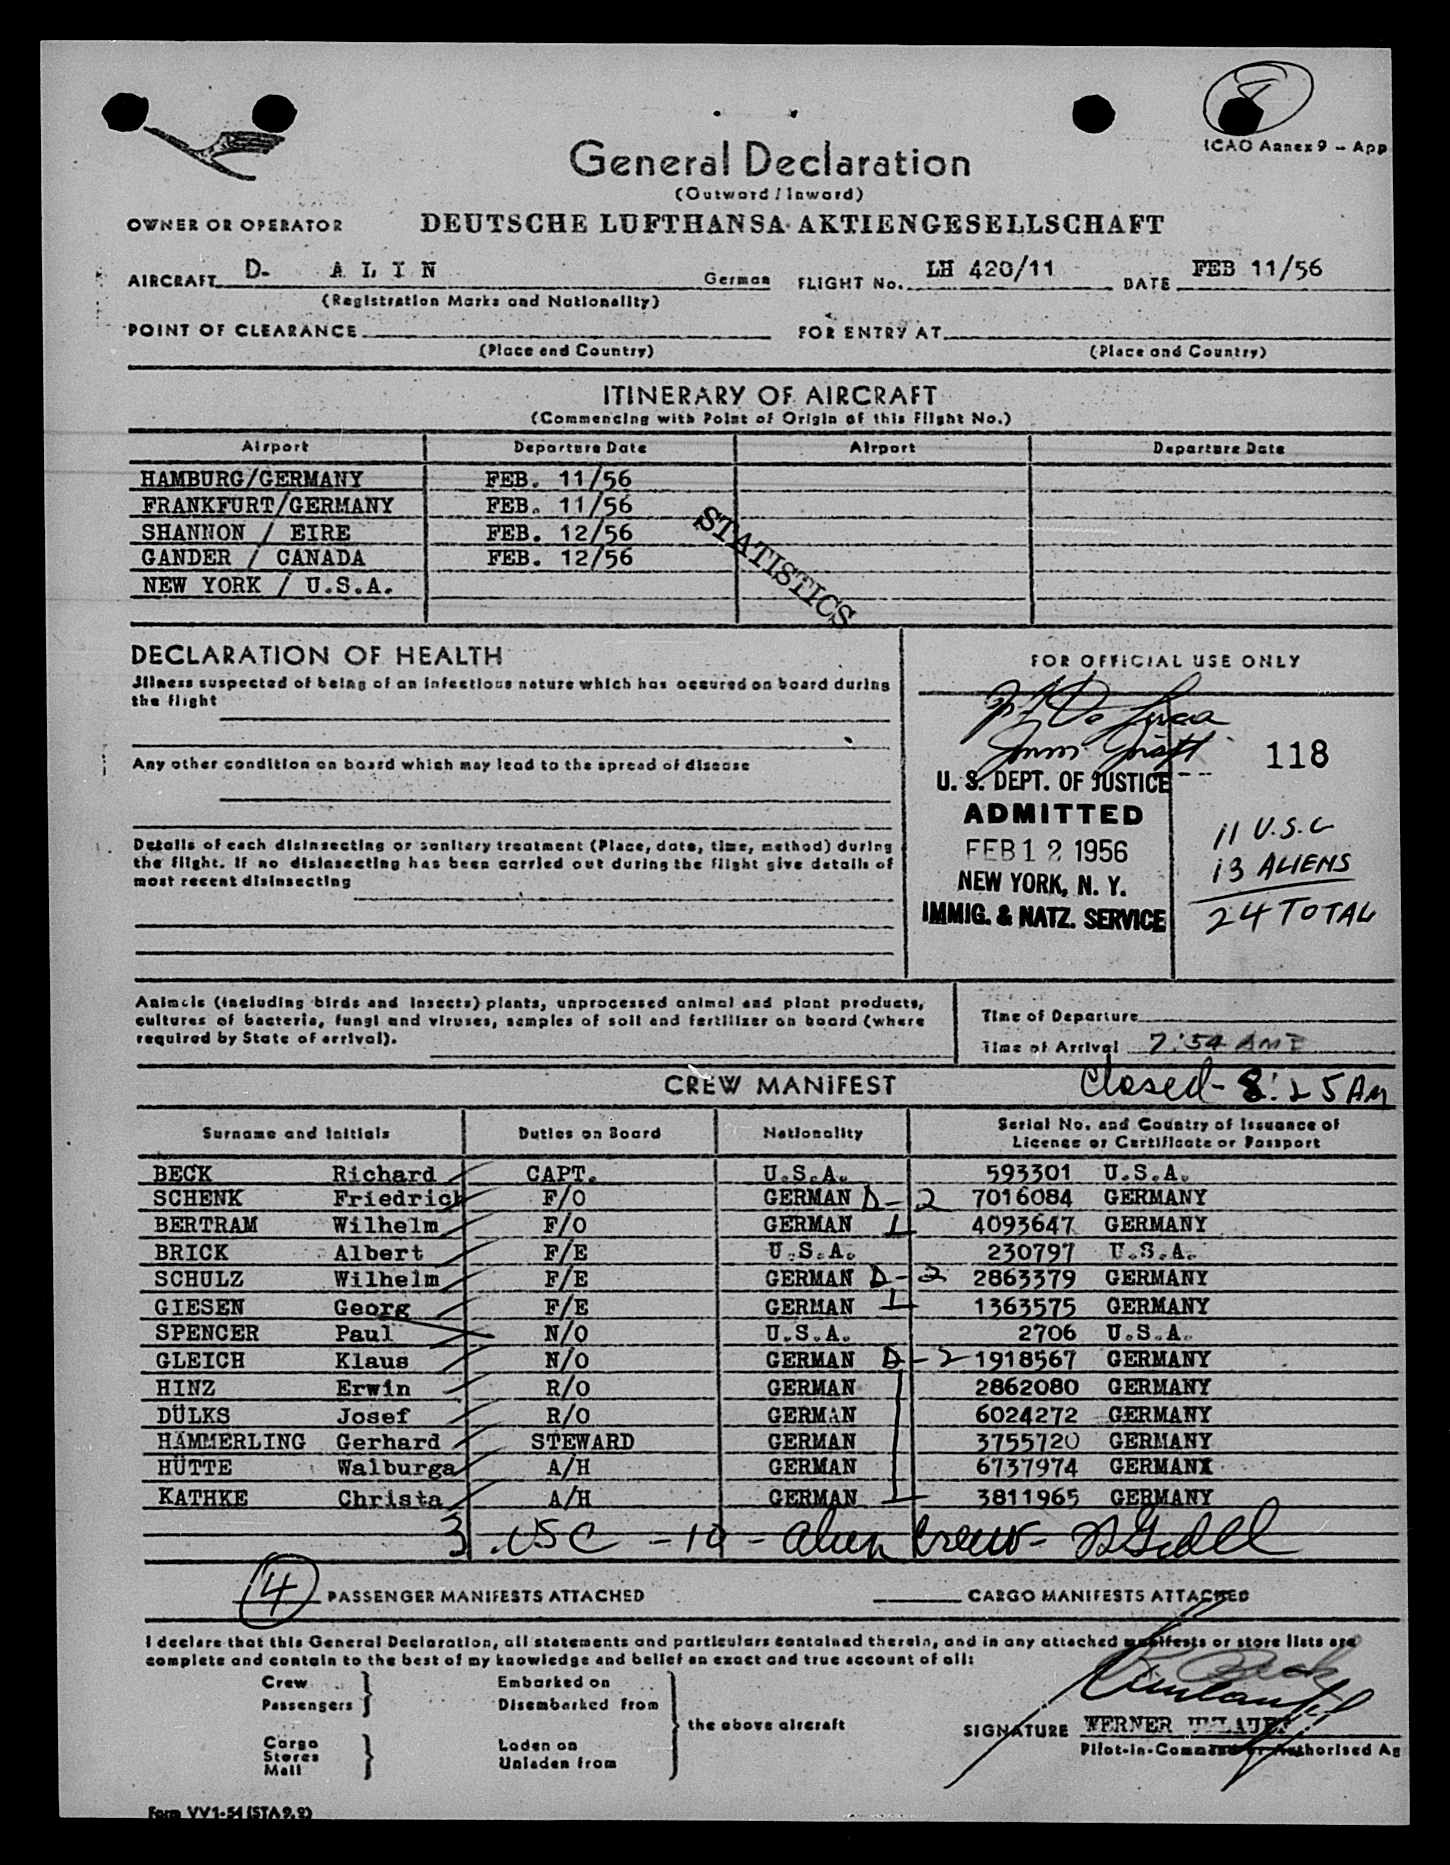 ICAO Annex 9 - App
General Declaration
(Outward / Inward)
OWNER OR OPERATOR DEUTSCHE LUFTHANSA AKTIENGESELLSCHAFT
AIRCRAFT D- A L I N German FLIGHT No. LH 420/11 DATE FEB 11/56
(Registration Marks and Nationality)
POINT OF CLEARANCE FOR ENTRY AT
(Place and Country) (Place and Country)
ITINERARY OF AIRCRAFT
(Commencing with Point of Origin of this Flight No.)
Airport Departure Date Airport Departure Date
HAMBURG/GERMANY FEB. 11/56
FRANKFURT/GERMANY FEB. 11/56
SHANNON / EIRE FEB. 12/56
GANDER / CANADA FEB. 12/56
NEW YORK / U.S.A.
STATISTICS
DECLARATION OF HEALTH
Illness suspected of being of an infectious nature which has occured on board during
the flight
Any other condition on board which may lead to the spread of disease
Details of each disinsecting or sanitary treatment (Place, date, time, method) during
the flight. If no disinsecting has been carried out during the flight give details of
most recent disinsecting
FOR OFFICIAL USE ONLY
118
U. S. DEPT. OF JUSTICE
ADMITTED
FEB 12 1956
NEW YORK, N. Y.
IMMIG. & NATZ. SERVICE
11 U.S.C
13 ALIENS
24 TOTAL
Animals (including birds and insects) plants, unprocessed animal and plant products,
cultures of bacteria, fungi and viruses, samples of soil and fertilizer on board (where
required by State of arrival).
Time of Departure
Time of Arrival 7:54 AM
CREW MANIFEST Closed - 8:25 AM
Surname and Initials Duties on Board Nationality Serial No. and Country of Issuance of
Licence or Certificate or Passport
BECK Richard CAPT. U.S.A. 593301 U.S.A.
SCHENK Friedrich F/O GERMAN D-2 7016084 GERMANY
BERTRAM Wilhelm F/O GERMAN 4093647 GERMANY
BRICK Albert F/E U.S.A. 230797 U.S.A.
SCHULZ Wilhelm F/E GERMAN D-2 2863379 GERMANY
GIESEN Georg F/E GERMAN 1363575 GERMANY
SPENCER Paul N/O U.S.A. 2706 U.S.A.
GLEICH Klaus N/O GERMAN D-2 1918567 GERMANY
HINZ Erwin R/O GERMAN 2862080 GERMANY
DÜLKS Josef R/O GERMAN 6024272 GERMANY
HÄMMERLING Gerhard STEWARD GERMAN 3755720 GERMANY
HÜTTE Walburga A/H GERMAN 6737974 GERMANY
KATHKE Christa A/H GERMAN 3811965 GERMANY
3. USC - 10 - alien crew -
4 PASSENGER MANIFESTS ATTACHED CARGO MANIFESTS ATTACHED
I declare that this General Declaration, all statements and particulars contained therein, and in any attached manifests or store lists are
complete and contain to the best of my knowledge and belief an exact and true account of all:
Crew Embarked on
Passengers Disembarked from
the above aircraft
Cargo Laden on
Stores
Mail Unladen from
SIGNATURE WERNER UMLAUFF
Pilot-in-Command or Authorised Ag
Form VV1-54 (STA 9.2)